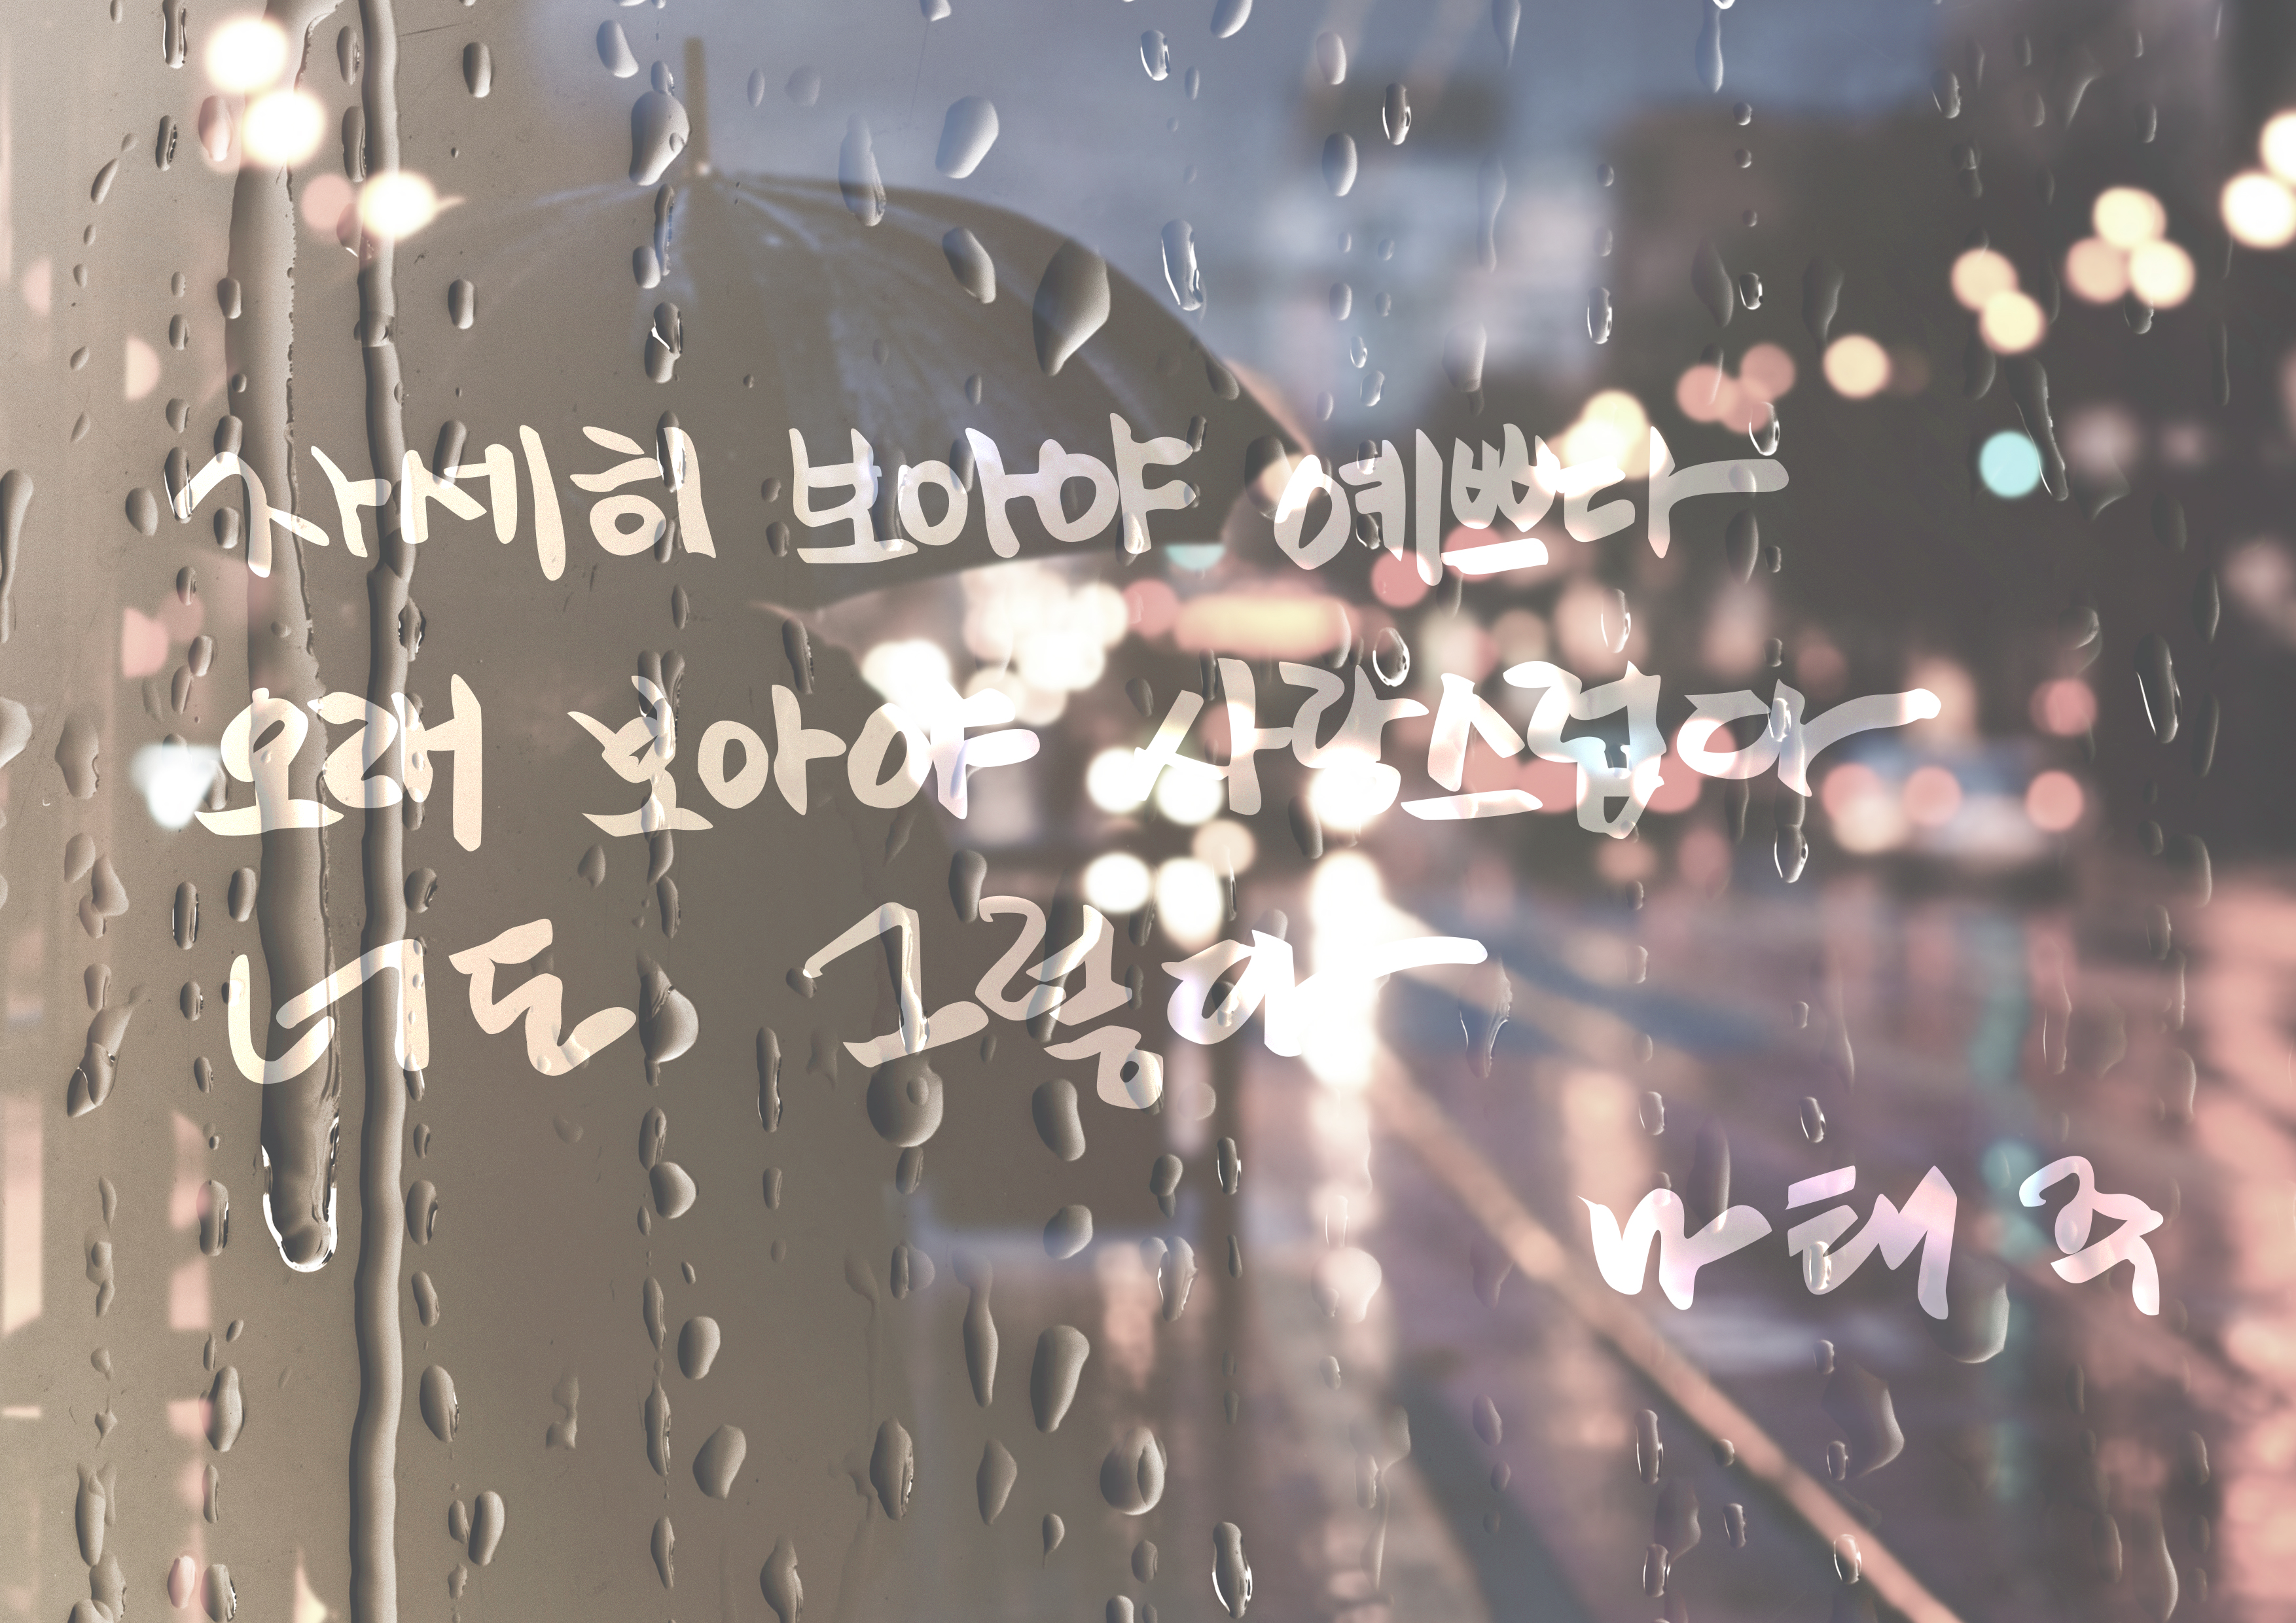 자세히 보아야 예쁘다
오래 보아야 사랑스럽다
너도 그렇다
나태주